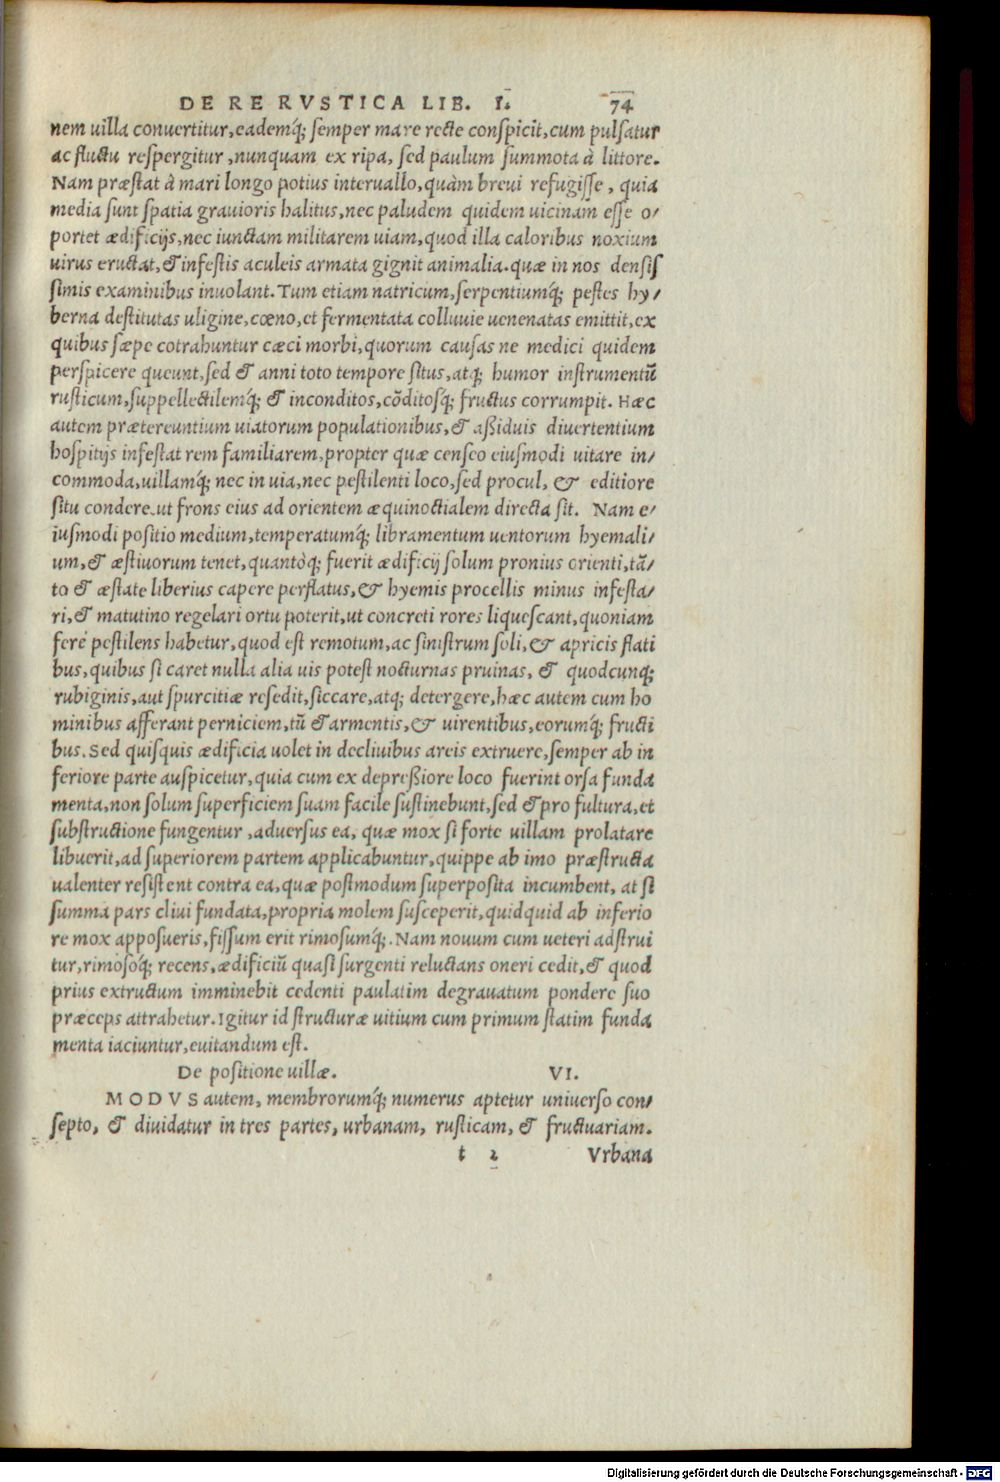 DE RE RVSTICA LIB. I. 74
nem uilla conuertitur, eademq́; semper mare recte conspicit, cum pulsatur
ac fluctu respergitur, nunquam ex ripa, sed paulum summota à littore.
Nam præstat à mari longo potius interuallo, quàm breui refugisse, quia
media sunt spatia grauioris halitus, nec paludem quidem uicinam esse o/
portet ædificijs, nec iunctam militarem uiam, quod illa caloribus noxium
uirus eructat, & infestis aculeis armata gignit animalia. quæ in nos densis
simis examinibus inuolant. Tum etiam natricum, serpentiumq́; pestes hy/
berna destitutas uligine, cœno, et fermentata colluuie uenenatas emittit, ex
quibus sæpe cotrahuntur cæci morbi, quorum causas ne medici quidem
perspicere queunt, sed & anni toto tempore situs, atq; humor instrumentũ
rusticum, suppellectilemq́; & inconditos, cõditosq́; fructus corrumpit. Hæc
autem prætereuntium uiatorum populationibus, & aßiduis diuertentium
hospitijs infestat rem familiarem, propter quæ censeo eiusmodi uitare in/
commoda, uillamq́; nec in uia, nec pestilenti loco, sed procul, & editiore
situ condere. ut frons eius ad orientem æquinoctialem directa sit. Nam e/
iusmodi positio medium, temperatumq́; libramentum uentorum hyemali/
um, & æstiuorum tenet, quantòq; fuerit ædificij solum pronius orienti, tã/
to & æstate liberius capere perflatus, & hyemis procellis minus infesta/
ri, & matutino regelari ortu poterit, ut concreti rores liquescant, quoniam
fere pestilens habetur, quod est remotum, ac sinistrum soli, & apricis flati
bus, quibus si caret nulla alia uis potest nocturnas pruinas, & quodcunq;
rubiginis, aut spurcitiæ resedit, siccare, atq; detergere, hæc autem cum ho
minibus afferant perniciem, tũ & armentis, & uirentibus, eorumq́; fructi
bus. Sed quisquis ædificia uolet in decliuibus areis extruere, semper ab in
feriore parte auspicetur, quia cum ex depreßiore loco fuerint orsa funda
menta, non solum superficiem suam facile sustinebunt, sed & pro fultura, et
substructione fungentur, aduersus ea, quæ mox si forte uillam prolatare
libuerit, ad superiorem partem applicabuntur, quippe ab imo præstructa
ualenter resistent contra ea, quæ postmodum superposita incumbent, at si
summa pars cliui fundata, propria molem susceperit, quidquid ab inferio
re mox apposueris, fissum erit rimosumq́;. Nam nouum cum ueteri adstrui
tur, rimosoq́; recens, ædificiũ quasi surgenti reluctans oneri cedit, & quod
prius extructum imminebit cedenti paulatim degrauatum pondere suo
præceps attrahetur. Igitur id structuræ uitium cum primum statim funda
menta iaciuntur, euitandum est.
De positione uillæ. VI.
MODVS autem, membrorumq́; numerus aptetur uniuerso con/
septo, & diuidatur in tres partes, urbanam, rusticam, & fructuariam.
t 2 Vrbana
Digitalisierung gefördert durch die Deutsche Forschungsgemeinschaft - DFG